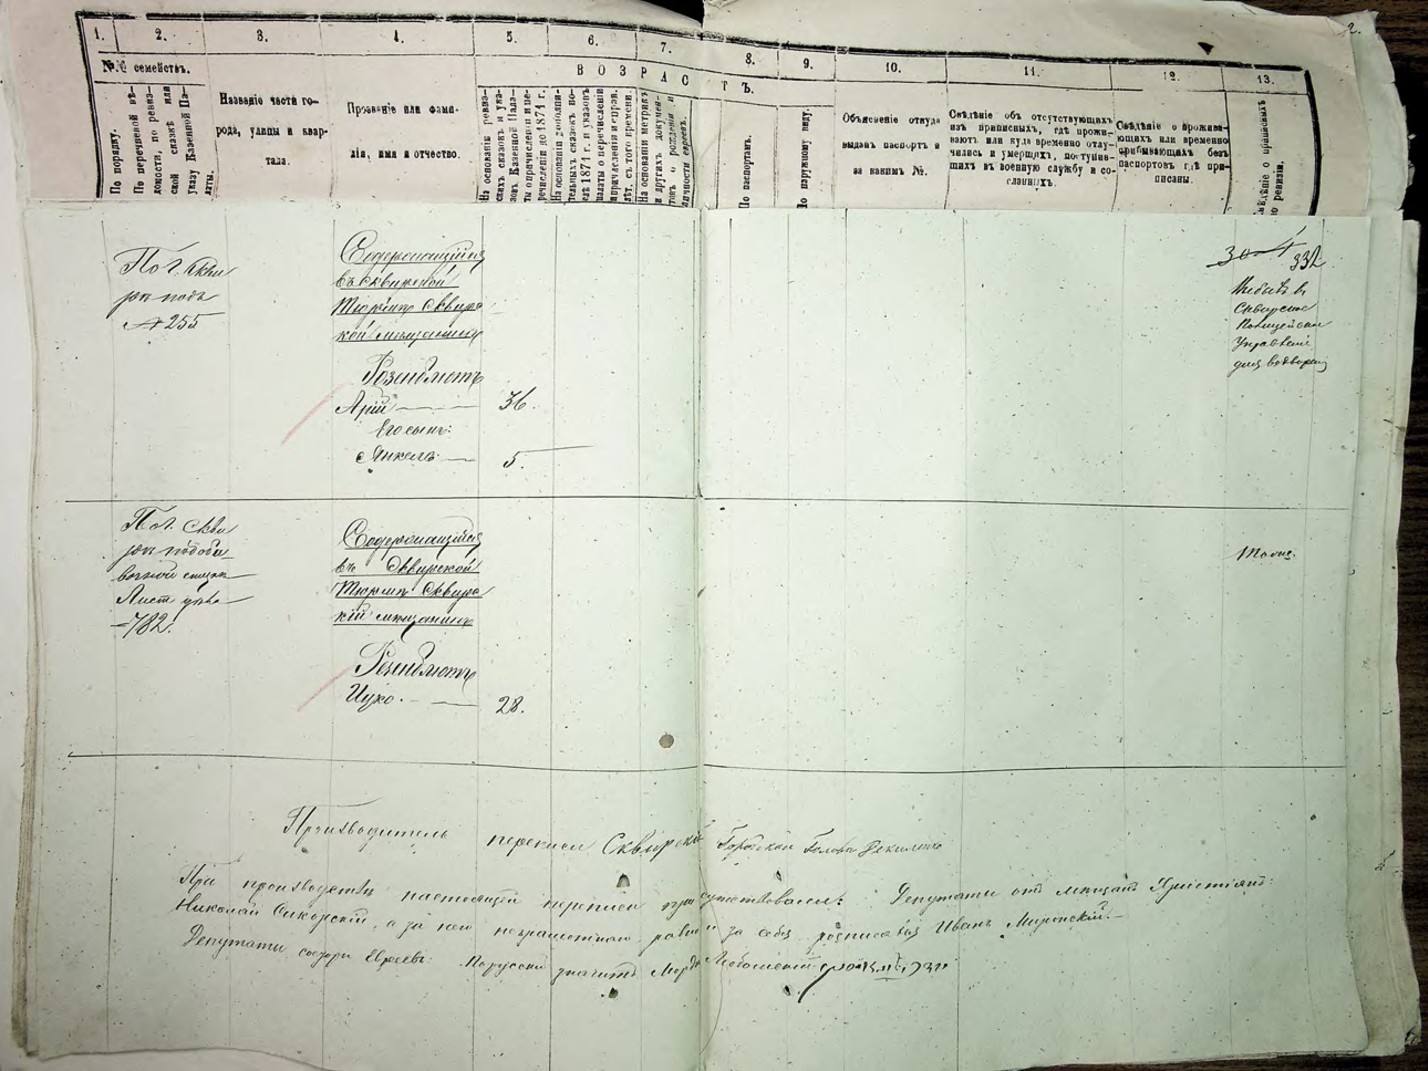 2.
1. 2. 3. 4. 5. 6. 7. 8. 9. 10. 11. 12. 13.
№№ семействъ.
В О З Р А С Т Ъ.
По порядку.
По перечневой вѣ-
домости, по ревиз-
ской сказкѣ или
указу Казенной Па-
латы.
Названіе части го-
рода, улицы и квар-
тала.
Прозваніе или фами-
лія, имя и отчество.
На основаніи ревиз-
скихъ сказокъ и ука-
зовъ Казенной Пала-
ты о причисленіи и пе-
речисленіи до 1871 г.
На основаніи дополни-
тельныхъ сказокъ по-
слѣ 1871 г. и указовъ
палаты о перечисленіи
На основаніи метрикъ
и другихъ докумен-
товъ о рожденіи и
личности евреевъ.
По паспортамъ.
По наружному виду.
Объясненіе откуда
выданъ паспортъ и
за какимъ №.
Свѣдѣніе объ отсутствующихъ
изъ приписныхъ, гдѣ прожи-
ваютъ или куда временно отлу-
чились и умершихъ, поступив-
шихъ въ военную службу и со-
сланныхъ.
Свѣдѣніе о прожива-
ющихъ или временно
прибывающихъ безъ
паспортовъ гдѣ при-
писаны.
Свѣдѣніе о приписныхъ
по ревизіи.
По г. Скви
рѣ подъ
№ 255
Содержащійся
въ Сквирской
Тюрьмѣ Сквирс
кой мѣщанинъ
Розенблютъ
Арій — 36.
Его сынъ:
Янкель — 5.
304 332
Сквирское
Полицейское
Управленіе
для водворен
По г. Скви
рѣ
Листъ
782.
Содержащійся
въ Сквирской
Тюрьмѣ Сквирс
кій мѣщанинъ
Розенблютъ
Ицко. — 28.
Тоже.
Производитель переписи Сквирскій Городской Голова
При производствѣ настоящей переписи присутствовали: Депутаты отъ мѣщанъ Христіянъ:
Николай Сикорскій, а за него неграмотнаго равно и за себя росписался Иванъ Миронскій.—
Депутаты сосѣди Евреевъ: